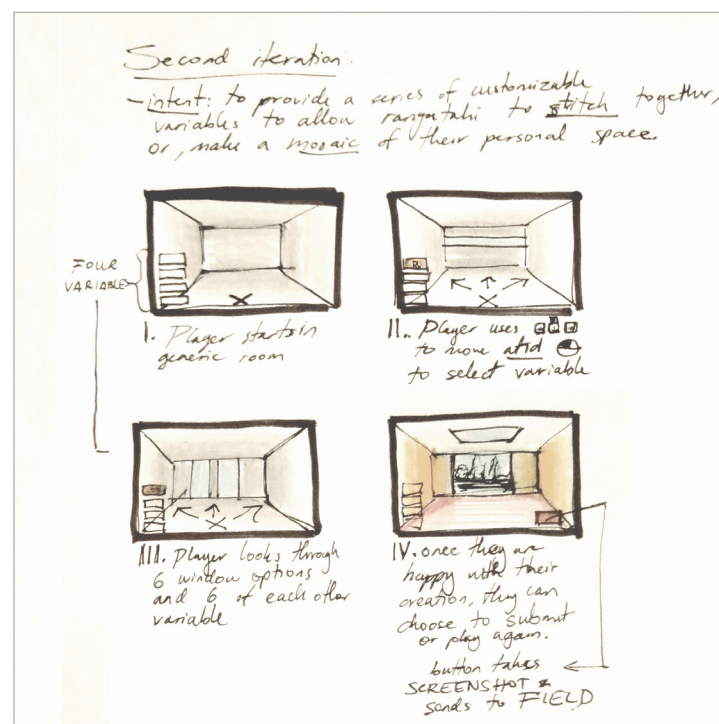 Second iteration:
- intent: to provide a series of customizable
variables to allow rangatahi to stitch together,
or, make a mosaic of their personal space.
FOUR
VARIABLES
I. Player starts in
generic room
II. Player uses
to move and
to select variable
III. Player looks through
6 window options
and 6 of each other
variable
IV. once they are
happy with their
creation, they can
choose to submit
or play again.
button takes
SCREENSHOT &
sends to FIELD